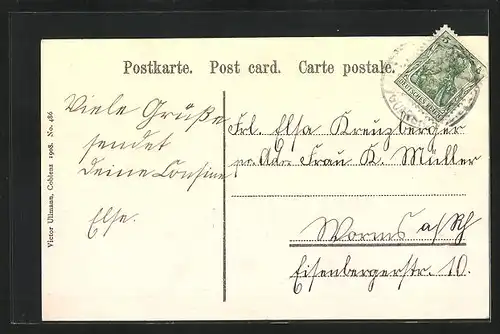 Postkarte. Post card. Carte postale.
5
DEUTSCHES REICH
Viele Grüße
sendet
deine Cousine
Else.
Frl. Elsa Kreuzberger
p. Adr. Frau K. Müller
Worms a/Rh
Eisenbergerstr. 10.
Victor Ullmann, Coblenz 1908. No. 486